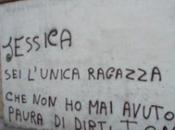 JESSICA
SEI L'UNICA RAGAZZA
CHE NON HO MAI AVUTO
PAURA DI DIRTI